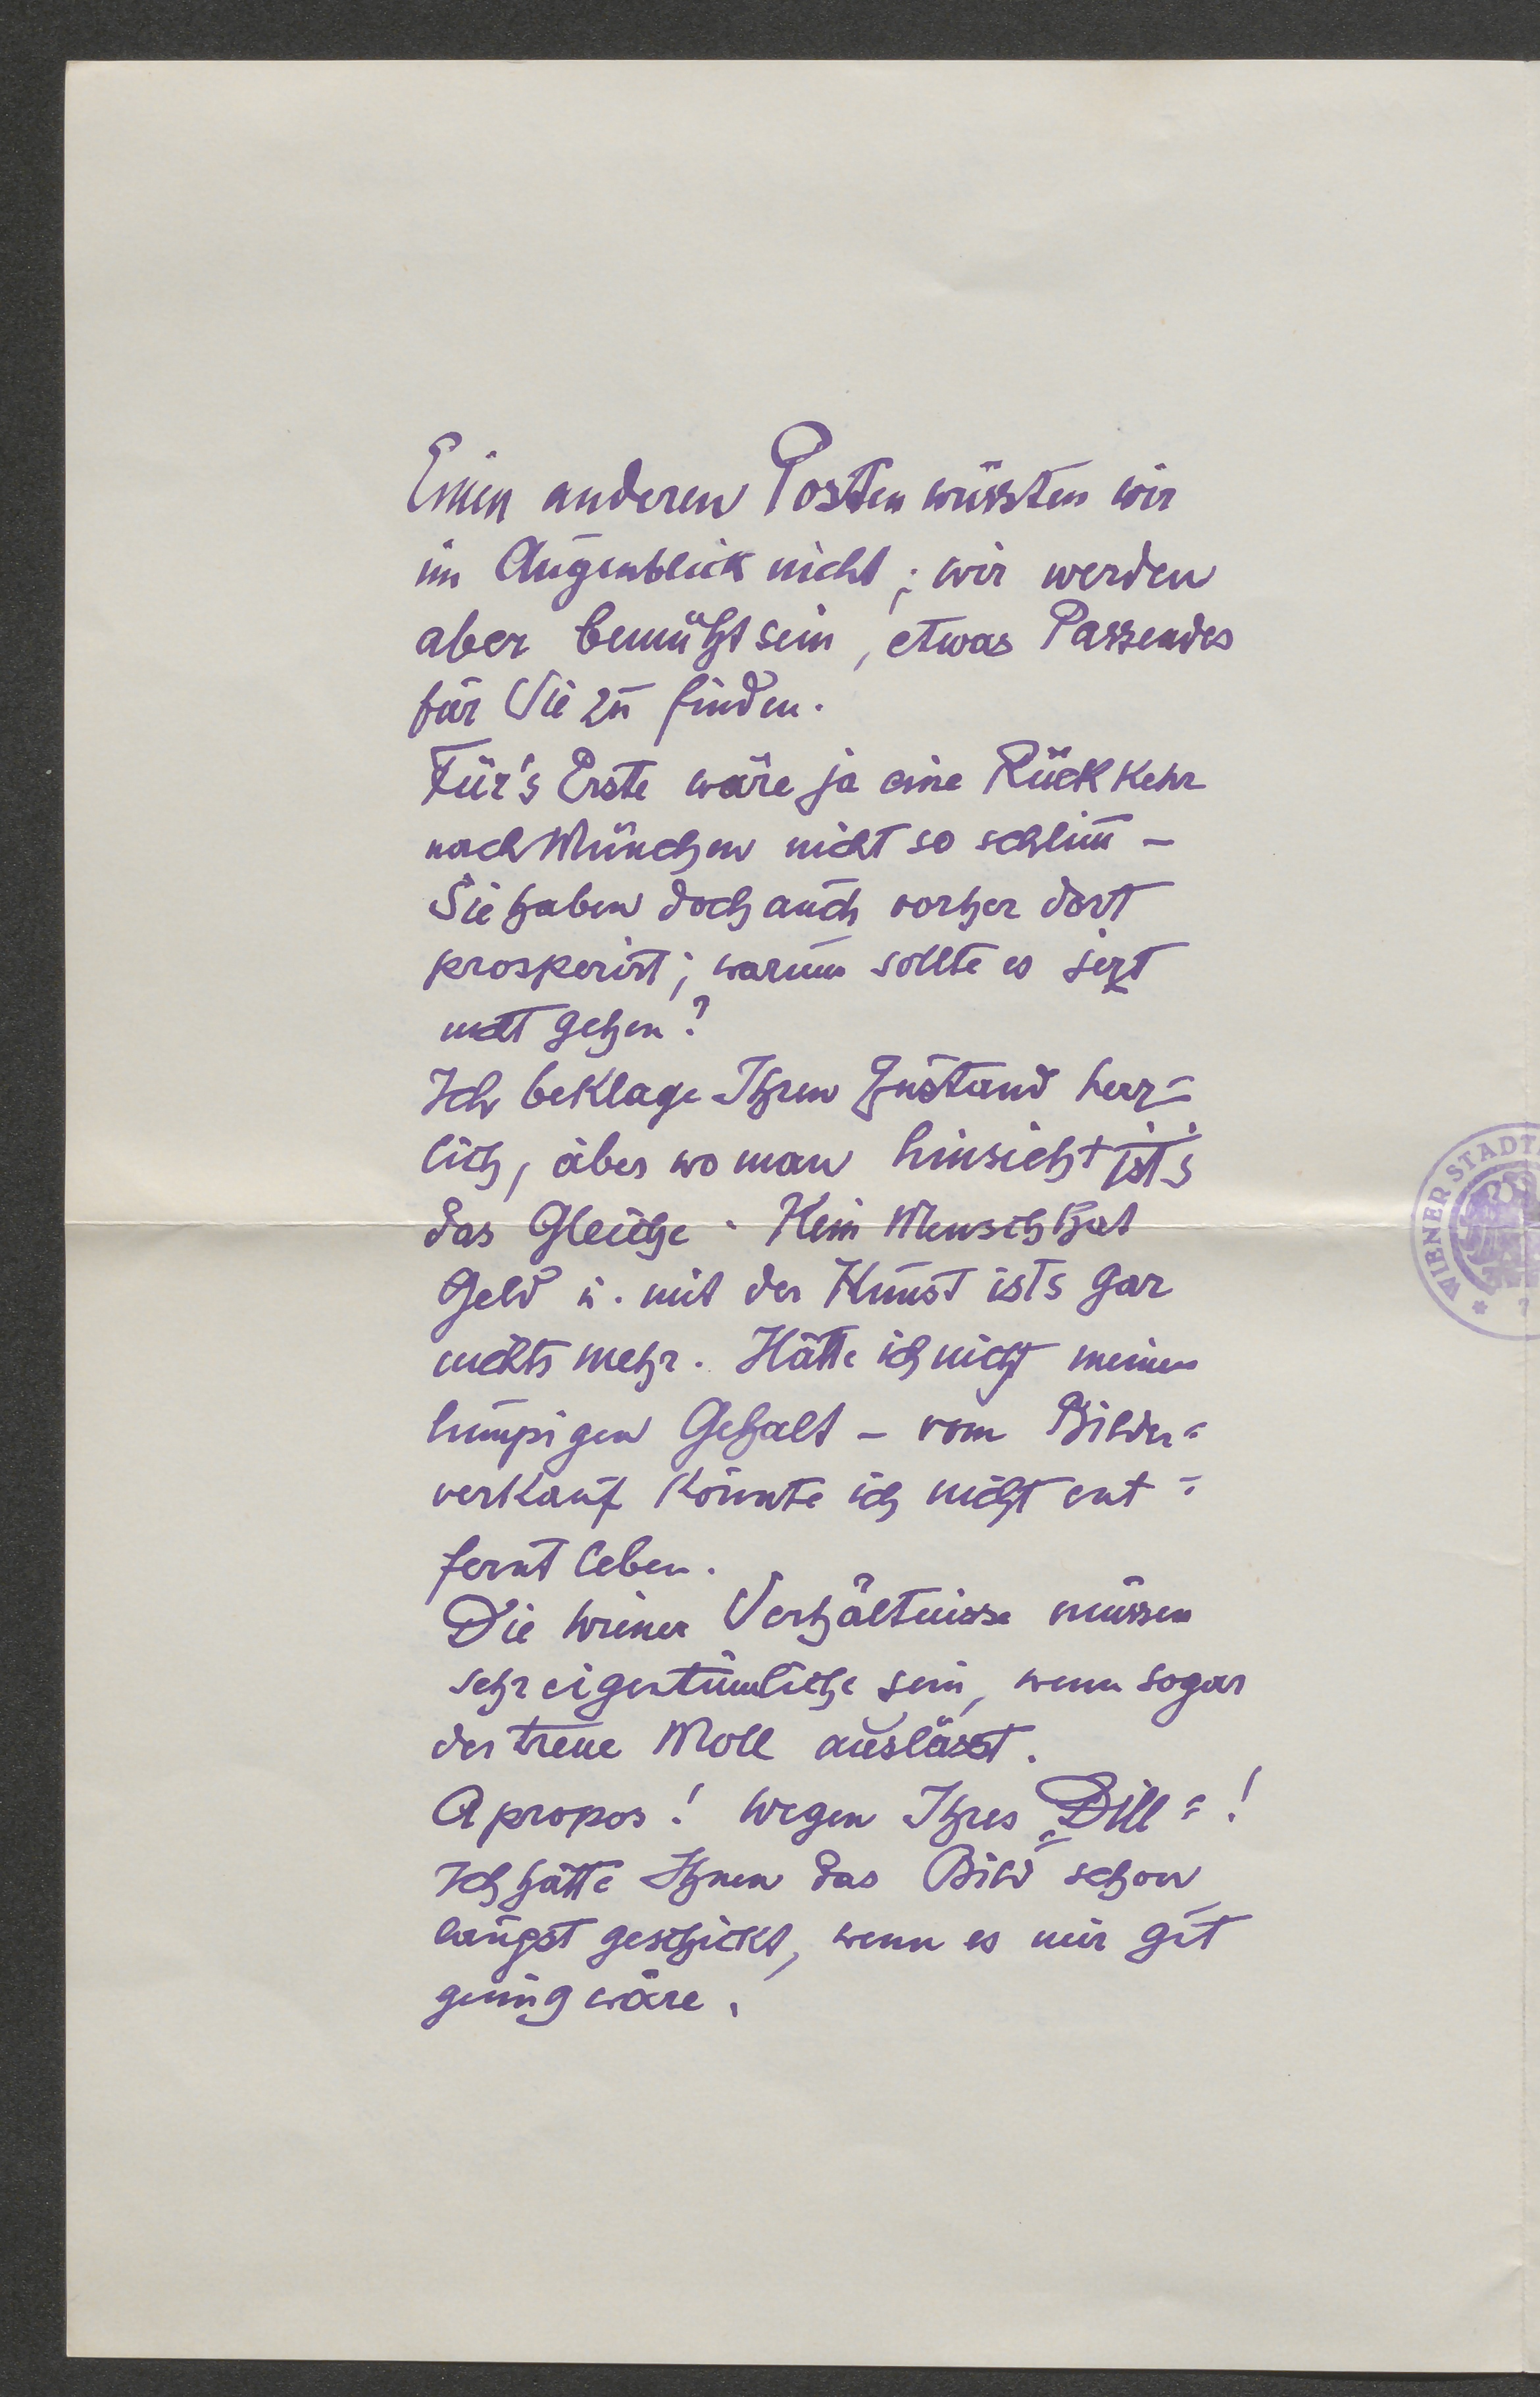 Einen anderen Posten wüssten wir
im Augenblick nicht; wir werden
aber bemüht sein, etwas Passendes
für Sie zu finden.
Für's Erste wäre ja eine Rückkehr
nach München nicht so schlim̄ –
Sie haben doch auch vorher dort
prosperirt; warum sollte es jezt
nicht gehen?
Ich beklage Ihren Zustand herz=
lich, aber wo man hinsieht ists
das Gleiche. Kein Mensch hat
Geld u. mit der Kunst ists gar
nichts mehr. Hätte ich nicht meinen
lumpigen Gehalt – vom Bilder=
verkauf könnte ich nicht ent=
fernt leben.
Die Wiener Verhältnisse müssen
sehr eigentümliche sein, wenn sogar
der treue Moll auslässt.
Apropos! Wegen Ihres „Dill"!
Ich hätte Ihnen das Bild schon
längst geschickt, wenn es mir gut
genug wäre.
WIENER STADT